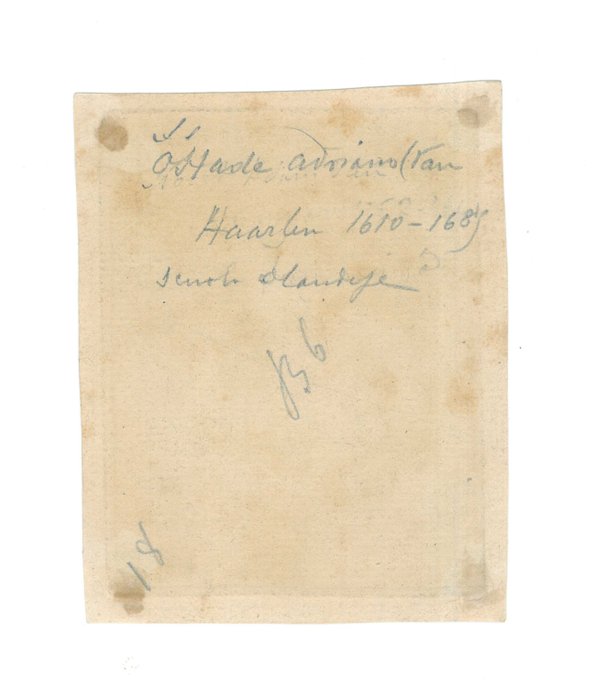 Ostade adriano (Van
Haarlen 1610-1685
scuola olandese
B6
18